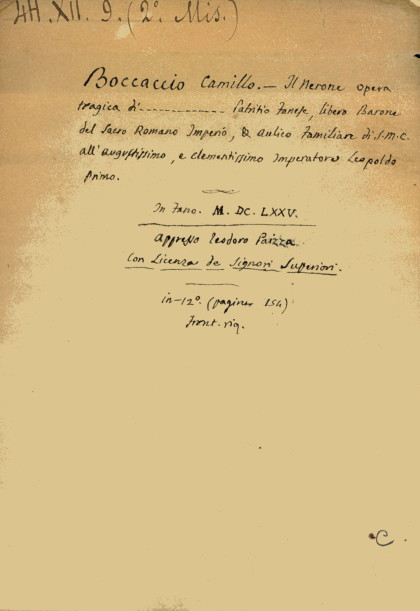 44. XII. 9. (2º. Mis.)
Boccaccio Camillo. — Il Nerone opera
tragica di ------------ Patritio Fanese, libero Barone
del Sacro Romano Imperio, & Aulico Familiare di S.M.C.
all'Augustissimo, e Clementissimo Imperatore Leopoldo
Primo.
In Fano. M. DC. LXXV.
Appresso Teodoro Piazza
Con Licenza de Signori Superiori.
in-12º. (pagine 154)
Front. rig.
C